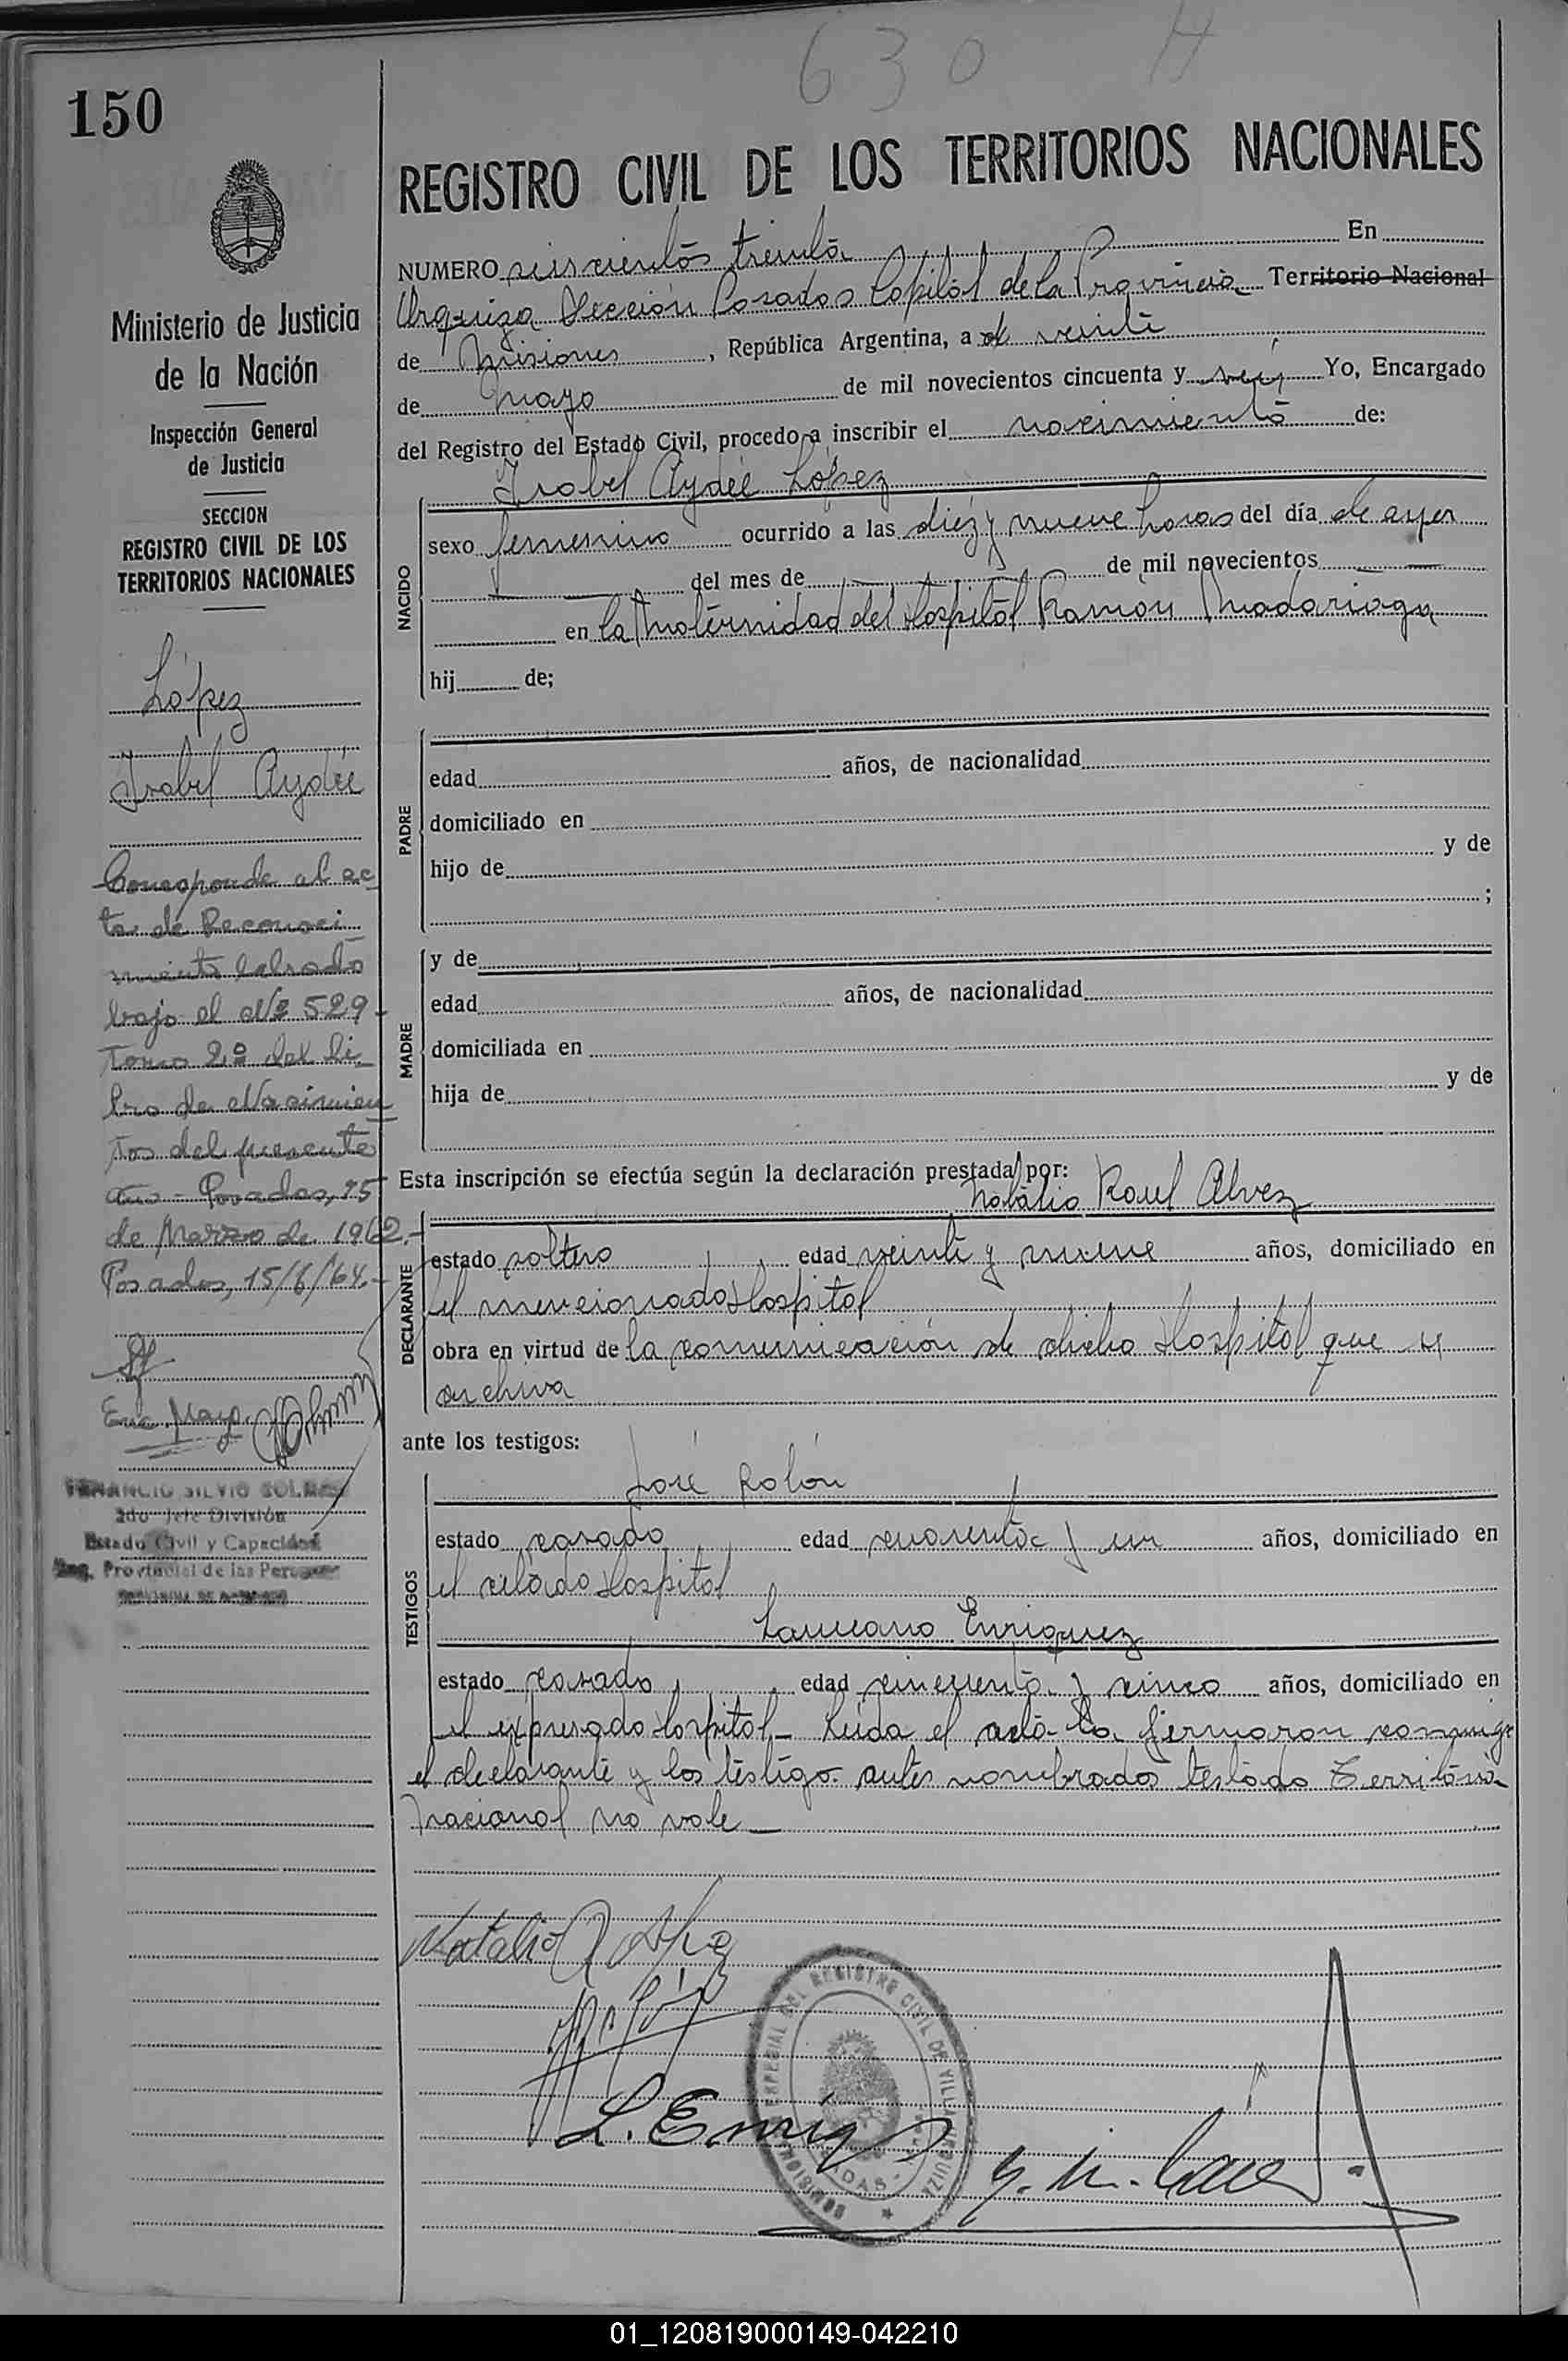 630
150
REGISTRO CIVIL DE LOS TERRITORIOS NACIONALES
NUMERO seiscientos treinta En
Urquiza Sección Posadas Capital de la Provincia Territorio Nacional
de Misiones, República Argentina, a de veinte
de Mayo de mil novecientos cincuenta y seis Yo, Encargado
del Registro del Estado Civil, procedo a inscribir el nacimiento de:
NACIDO
Isabel Aydeé López
sexo femenino ocurrido a las diez y nueve horas del día de ayer
del mes de de mil novecientos
en la Maternidad del Hospital Ramón Madariaga
hij de;
PADRE
edad años, de nacionalidad
domiciliado en
hijo de y de
;
MADRE
y de
edad años, de nacionalidad
domiciliada en
hija de y de
Esta inscripción se efectúa según la declaración prestada por:
DECLARANTE
Natalio Raul Alvez
estado soltero edad veinte y nueve años, domiciliado en
el mencionado Hospital
obra en virtud de la comunicación de dicho Hospital que se
archiva
ante los testigos:
TESTIGOS
José Rolón
estado casado edad cuarenta y un años, domiciliado en
el citado Hospital
Laureano Enriquez
estado casado edad cincuenta y cinco años, domiciliado en
el expresado Hospital_ Leída el acta la firmaron conmigo
el declarante y los testigo antes nombrados testado Territorio
nacional no vale_
Natalio R Alvez
L. Enriq
Ministerio de Justicia
de la Nación
Inspección General
de Justicia
SECCION
REGISTRO CIVIL DE LOS
TERRITORIOS NACIONALES
López
Isabel Aydeé
Corresponde al ac
ta de Reconoci
miento labrado
bajo el Nº 529-
Tomo 2º del Li
bro de Nacimien
tos del presente
año - Posadas, 15
de Marzo de 1962.-
Posadas, 15/6/64.-
VENANCIO SILVIO
2do Jefe División
Estado Civil y Capacidad
Reg. Provincial de las Personas
REGISTRO CIVIL DE VILLA URQUIZA
01_120819000149-042210